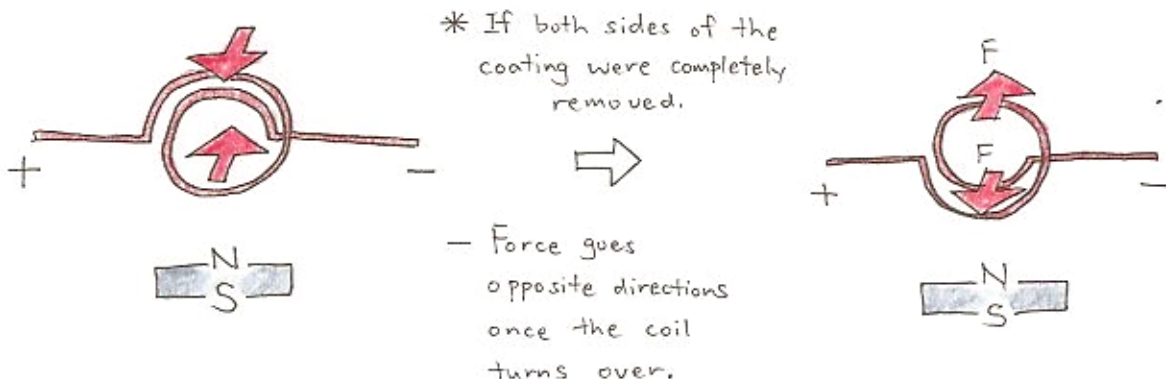 * If both sides of the
coating were completely
removed.
+
-
N
S
- Force goes
opposite directions
once the coil
turns over.
F
F
+
-
N
S